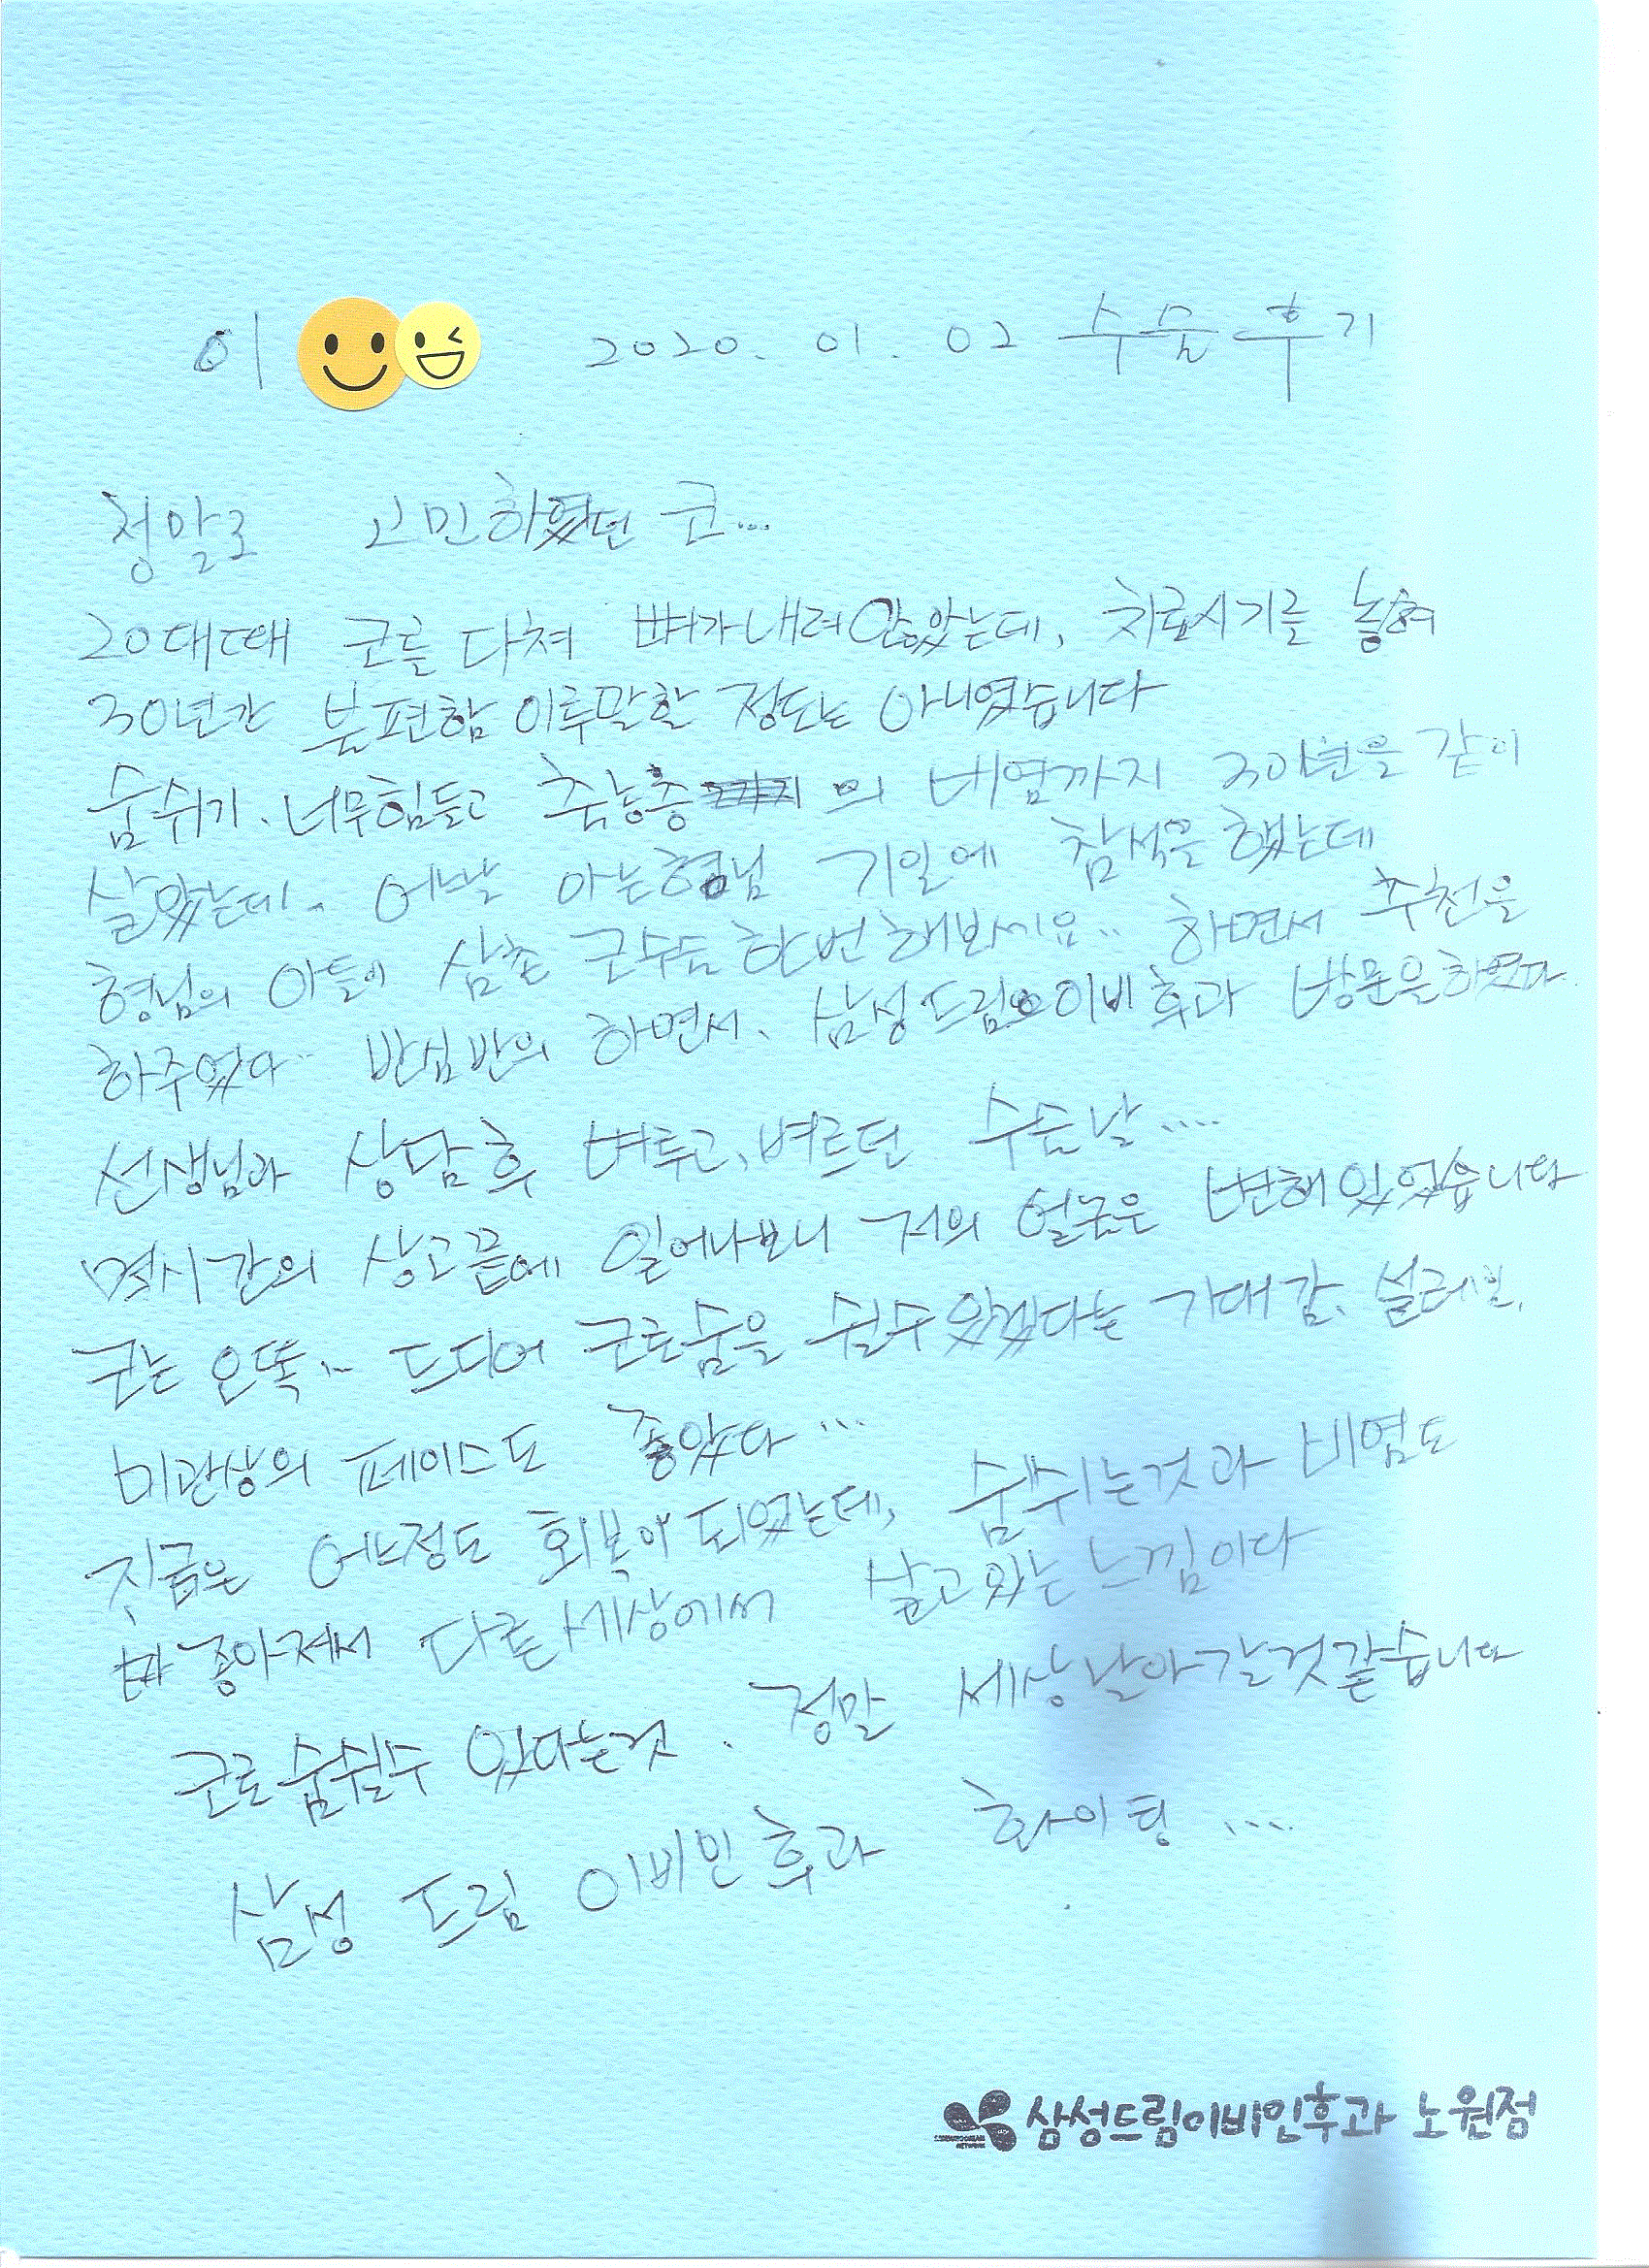 이 2020. 01. 02 수술후기
정말로 고민하였던 코...
20대때 코를 다쳐 뼈가 내려 앉았는데, 치료시기를 놓쳐
30년간 불편함 이루말할 정도는 아니였습니다
숨쉬기. 너무힘들고 축농증 의 비염까지 30년을 같이
살았는데. 어느날 아는형님 기일에 참석을 했는데
형님의 아들이 삼촌 코수술 한번 해보세요.. 하면서 추천을
하주었다.. 반심반의 하면서. 삼성드림이비후과 방문을하였다.
선생님과 상담후 벼루고, 벼르던 수술날....
몇시간의 상고끝에 일어나보니 저의 얼굴은 변해있었습니다
코는 오똑.. 드디어 코로숨을 쉴수있겠다는 기대감. 설레임.
미관상의 페이스도 좋았다...
지금은 어느정도 회복이 되었는데, 숨쉬는것과 비염도
좋아져서 다른세상에서 살고있는느낌이다
코로숨쉴수 있다는것. 정말 세상날아갈것같습니다
삼성 드림 이비인후과 화이팅 ...
삼성드림이비인후과 노원점